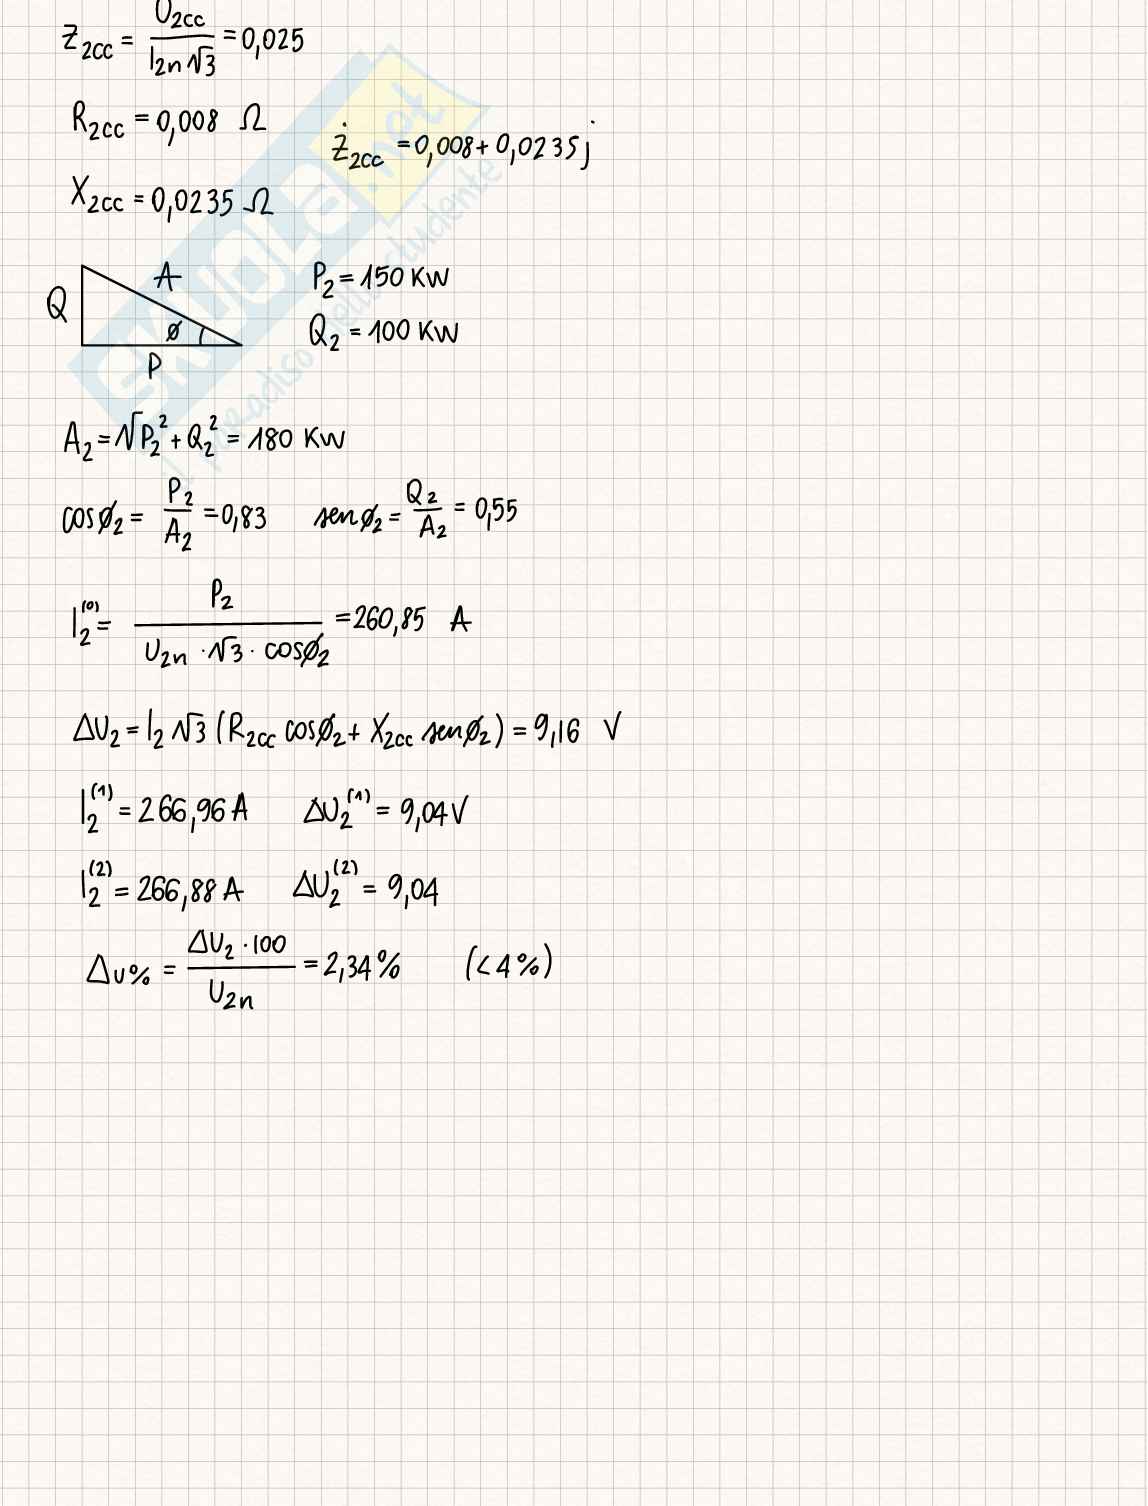 Z₂cc = U₂cc / I₂n √3 = 0,025
R₂cc = 0,008 Ω
Ż₂cc = 0,008 + 0,0235 j
X₂cc = 0,0235 Ω
Q A ø P
P₂ = 150 KW
Q₂ = 100 KW
A₂ = √P₂² + Q₂² = 180 KW
cosø₂ = P₂ / A₂ = 0,83 senø₂ = Q₂ / A₂ = 0,55
I₂⁽⁰⁾ = P₂ / U₂n · √3 · cosø₂ = 260,85 A
ΔU₂ = I₂ √3 (R₂cc cosø₂ + X₂cc senø₂) = 9,16 V
I₂⁽¹⁾ = 266,96 A ΔU₂⁽¹⁾ = 9,04 V
I₂⁽²⁾ = 266,88 A ΔU₂⁽²⁾ = 9,04
Δu% = ΔU₂ · 100 / U₂n = 2,34 % (< 4 %)
SKUOLA.net
il paradiso dello studente